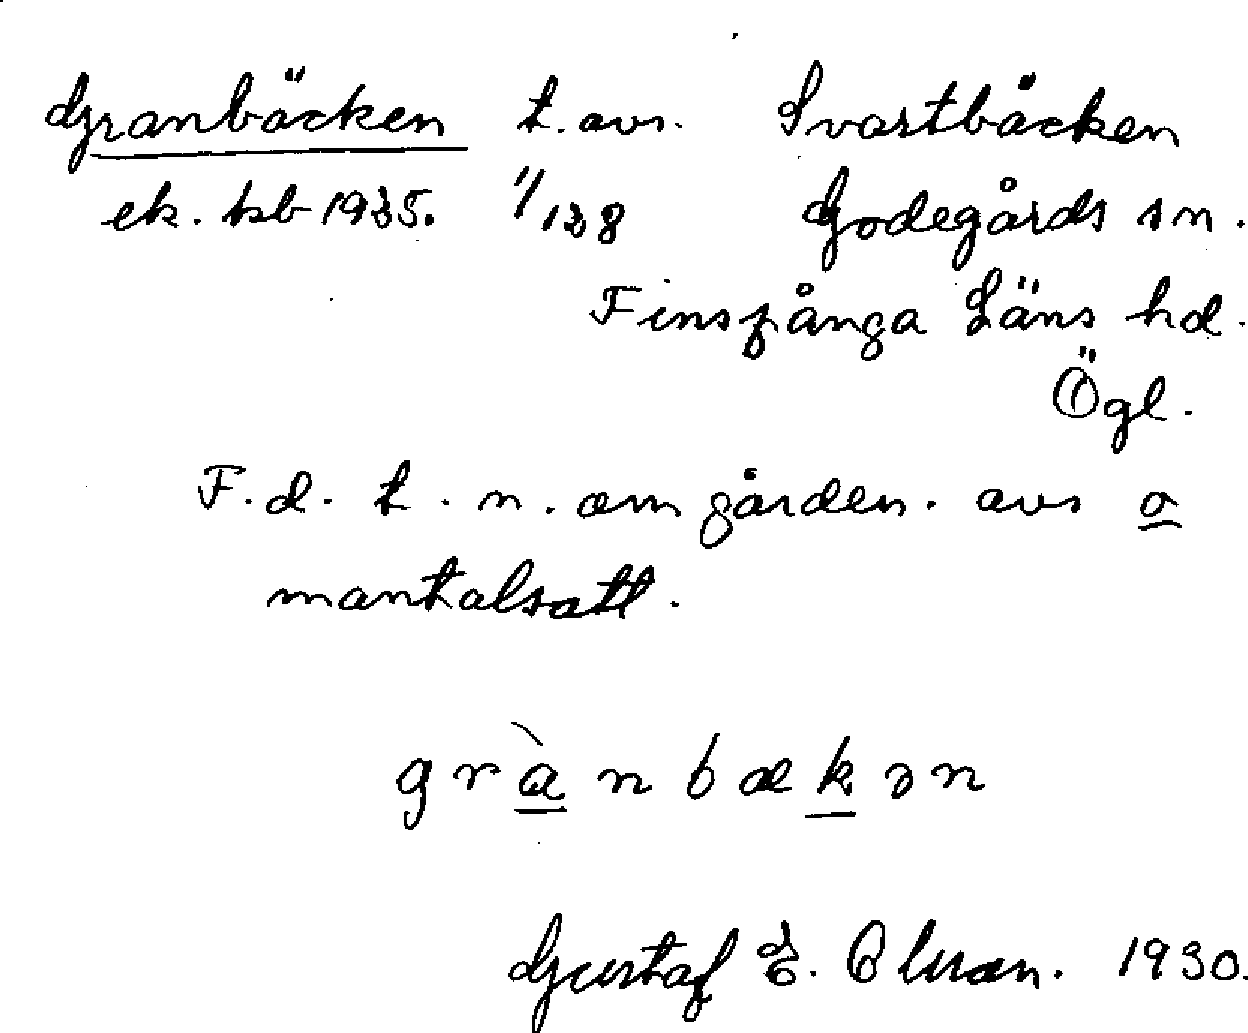 Granbäcken t. avs. Svartbäcken
ek. kb 1935. 1/128 Godegårds sn.
Finspånga Läns hd.
Ögl.
F.d. t. n. om gården. avs o
mantalsatt.
grànbækən
Gustaf E. Olsson. 1930.